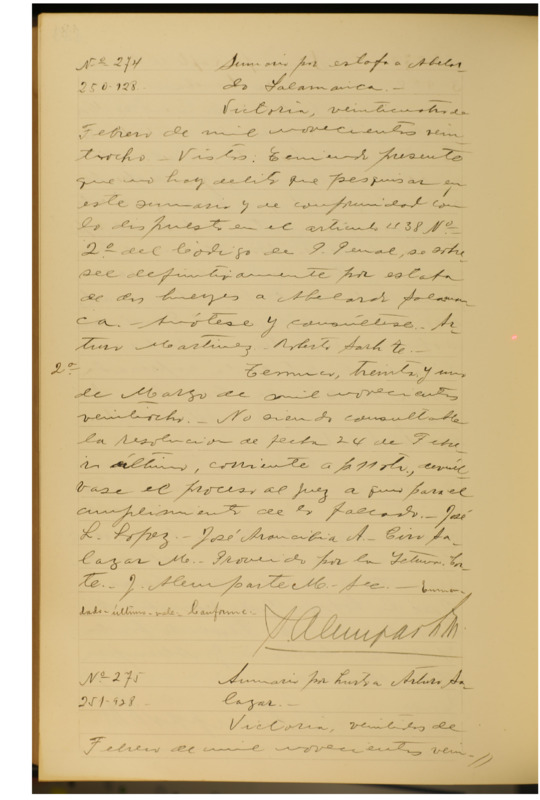 Nº 274 Sumario por estafa a Abelar-
250-928. do Salamanca.-
Victoria, veinticuatro de
Febrero de mil novecientos vein-
tiocho.- Vistos: Teniendo presente
que no hay delito que pesquisar en
este sumario y de conformidad con
lo dispuesto en el artículo 438 Nº
2º del Código de P. Penal, se sobre-
see definitivamente por estafa
de dos bueyes a Abelardo Salaman-
ca.- Anótese y consúltese. Ar-
turo Martinez. Roberto
2º Temuco, treinta y uno
de Marzo de mil novecientos
veintiocho.- No siendo consultable
la resolucion de fecha 24 de Febre-
ro último, corriente a devuél-
vase el proceso al juez a quo para el
cumplimiento de lo fallado.- José
L. Lopez.- José Arancibia A.- Ciro Sa-
lazar M.- Proveido por la Iltma. Cor-
te.- J. Alemparte M.- Sec.- Enmen-
dado-último-vale. Conforme.-
J. Alemparte M.
Nº 275 Sumario por hurto a Arturo Sa-
251-928 lazar.-
Victoria, veintidos de
Febrero de mil novecientos vein-//